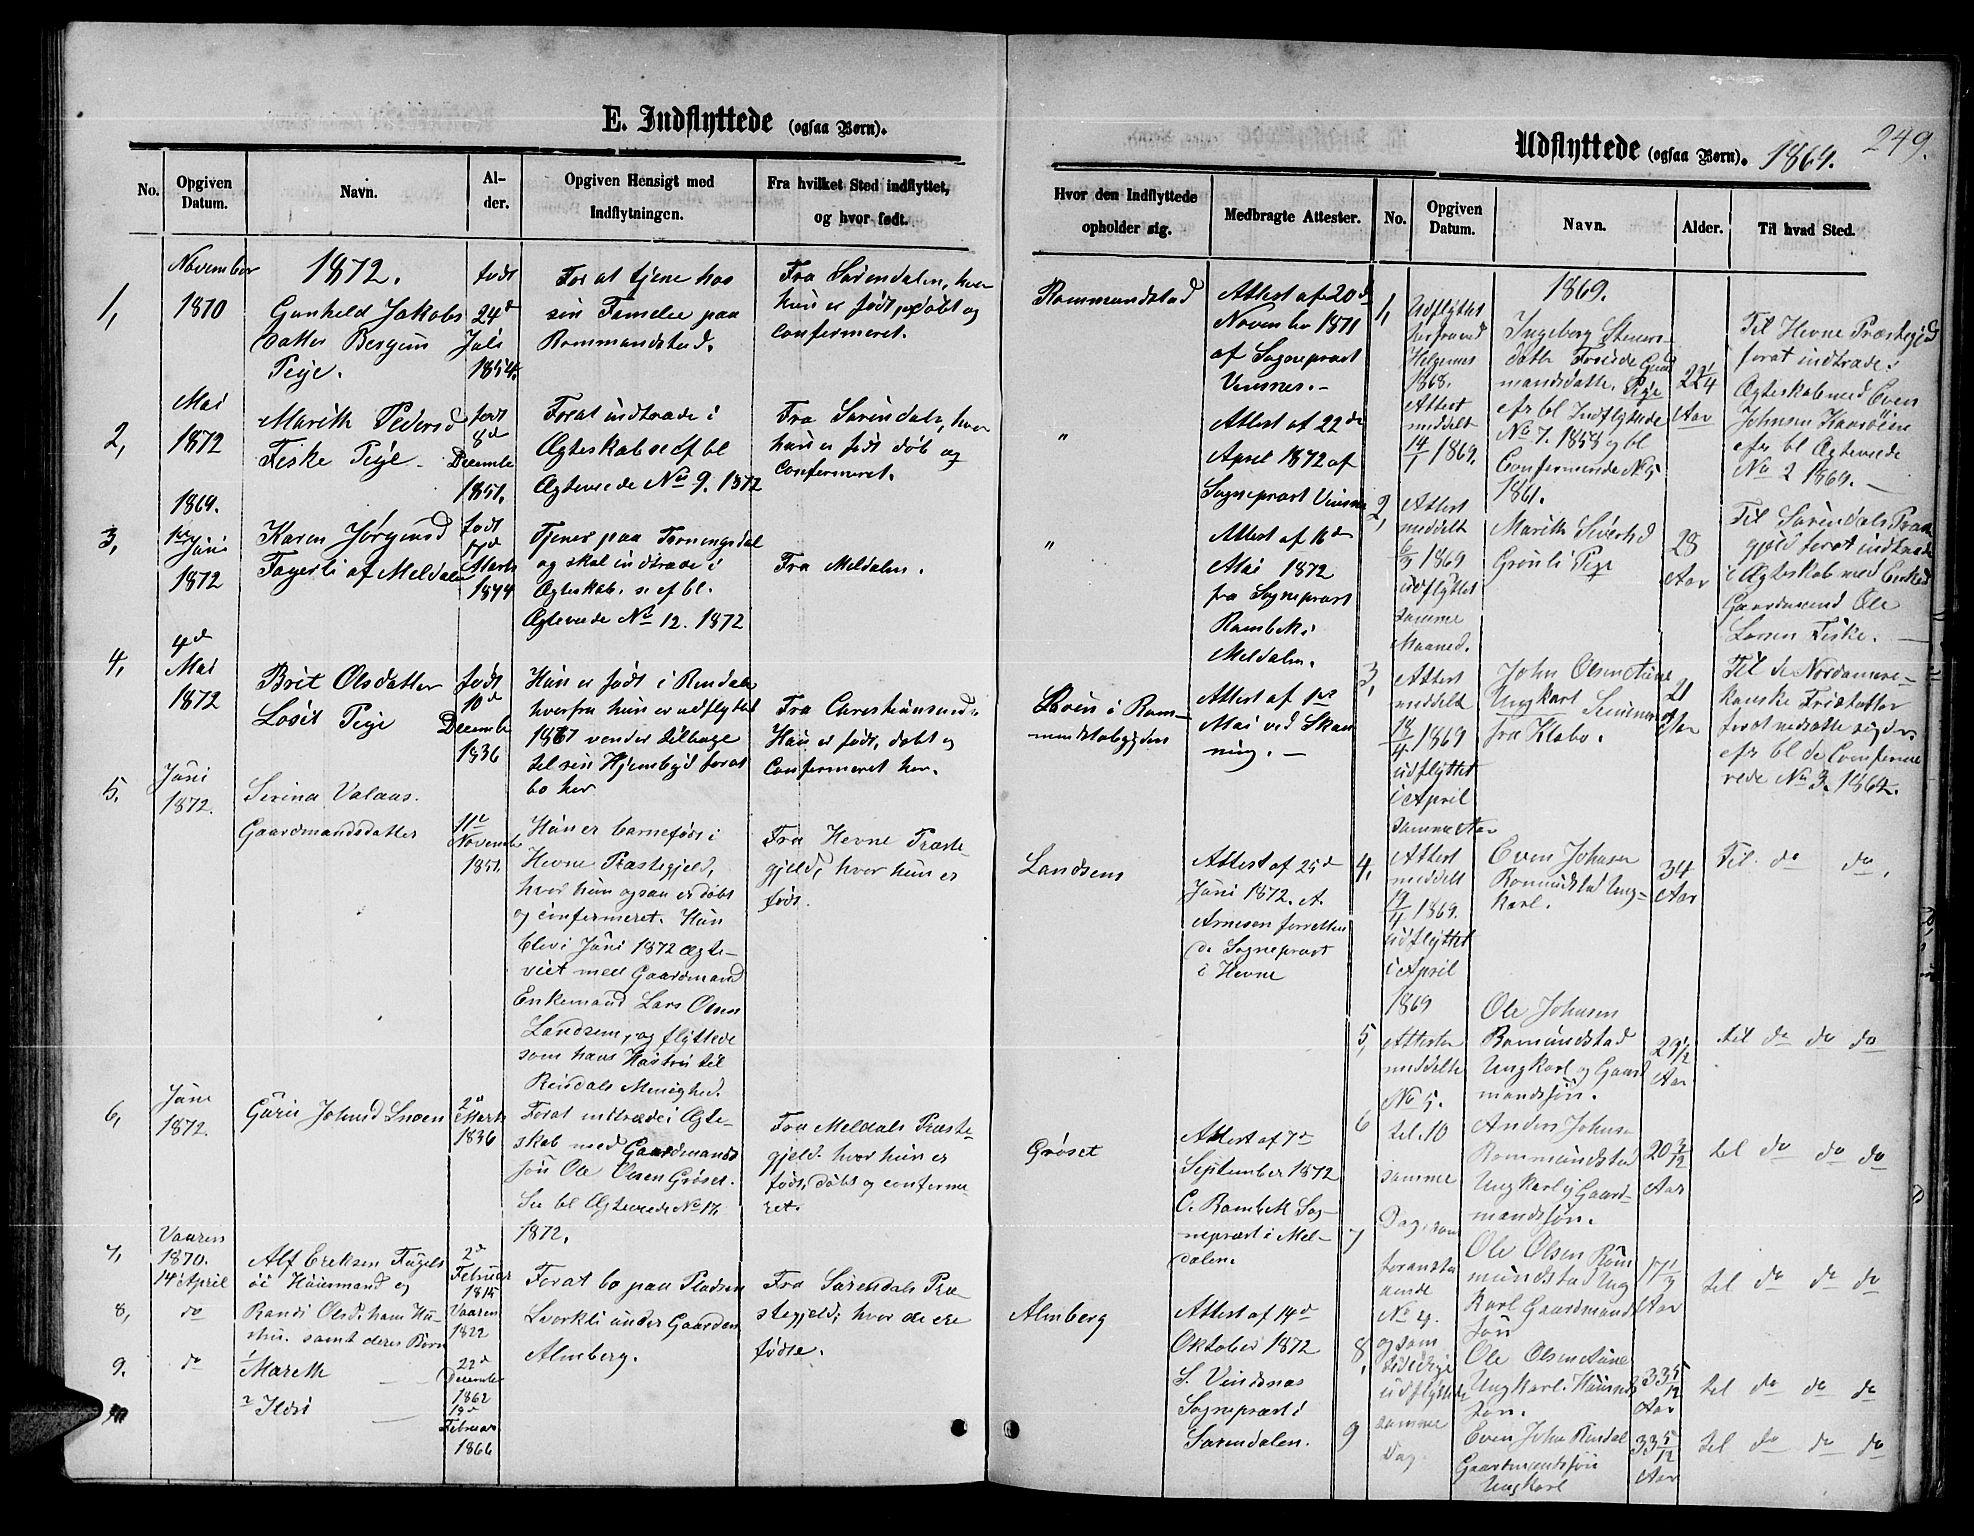 E. Indflyttede (ogsaa Børn).
No.
Opgiven Datum.
Navn.
Alder.
Opgiven Hensigt med Indflytningen.
Fra hvilket Sted indflyttet, og hvor født.
1872.
1,
November
1870
Gunhild Jakobs
datter Bergem
Pige.
født
24de
Juli
1854.
For at tjene hos
sin Familie paa
Rommundstad.
Fra Surendalen, hvor
hun er født, døbt og
confirmeret.
2,
Mai
1872
Marith Pedersd
Feske Pige
født
8de
Decembe
1851.
Forat indtræde i
Ægteskab se efbl
Ægteviede No 9. 1872
Fra Surendalen, hvor
hun er født døbt og
confirmeret.
3,
1869.
Juni
1872
Karen Jørgensd
Fagerli af Meldalen
født
7de
Marts
1844
Tjener paa Torningsdal
og skal indtræde i
Ægteskab, se ef bl.
Ægteviede No 12. 1872
Fra Meldalen.
4,
4de
Mai
1872
Brit Olsdatter
Løset Pige
født
10de
Decembe
1836
Hun er født i Rendalen
hvorfra hun er udflyttet
1867 vender tilbage
til sin Hjembygd forat
bo her
Fra Christiansund.
Hun er født, døbt og
Confermeret her.
5.
Juni
1872.
Serina Valaas.
Gaardmandsdatter
11te
Novembe
1851.
Hun er barnefødt i
Hevne Præstegjeld,
hvor hun ogsaa er døbt
og confermeret. Hun
blev i Juni 1872 Ægte-
viet med Gaardmand
Enkemand Lars Olsen
Landsem, og flyttede
som hans Hustru til
Rindals Menighed.
Fra Hevne Præste-
gjeld, hvor hun er
født.
6,
Juni
1872.
Guru Johnsd Snoen
2de
Marts
1836
Forat indtræde i Ægte-
skab med Gaardmands
søn Ole Olsen Grøset.
Se bl Ægteviede No 17,
1872.
Fra Meldals Præste-
gjeld. hvor hun er
født, døbt og conferme-
ret.
7,
Vaaren
1870.
14 April
Alf Eriksen Fugels
øi Huusmand og
2de
Februar
1815
Forat bo paa Pladsen
Lvorkli under Gaarden
Almberg.
Fra Surendals Præ
stegjeld, hvor de ere
fødte.
8,
do
Randi Olsd. hans Hu-
stru. samt deres Børn
Vaaren
1822
9.
do
1 Mareth
22de
December
1862
2 Ildri
19de
Februar
1866
Udflyttede (ogsaa Børn). 1869.
249.
Hvor den Indflyttede opholder sig.
Medbragte Attester.
No.
Opgiven Datum.
Navn.
Alder.
Til hvad Sted.
Rommundstad
Attest af 20de
Novembr 1871
af Sognepræst
Vinsnes.
"
Attest af 22de
April 1872 af
Sognepræst Vinsnes
"
Attest af 16de
Mai 1872
fra Sognepræst
Rambek i
Meldalen.
Løsen i Rom-
mundstabygden
Attest af 1ste
Mai ved Skan
ning.
Landsem
Attest af 25de
Juni 1872. A.
Arnesen forretten
de Sognepræst
i Hevne
Grøset
Attest af 7de
September 1872
C. Rambek Sog-
nepræst i Mel-
dalen.
Almberg
Attest af 14de
Oktober 1872
S. Vindsnæs
Sognepræst i
Surendalen.
1869.
1,
Udflyttet
1868.
Attest
meddelt
14/1 1869.
Ingeborg Sivers-
datte
mandsdatte, Pige
efr bl Indflyttede
No 7. 1858 og bl
Confermerede No 5
1861.
22 1/4
Aar
Til Hevne Præstegjd
forat indtræde i
Ægteskab med Even
Johnsen
efr bl Ægteviede
No 2 1869.
2,
Attest
meddelt
6/3 1869
udflyttet
samme
Maaned.
Marith Siversd
Grønli Pige
28
Aar
Til Surendals Præs
gjeld forat indtræde
i Ægteskab med Enkem
Gaardmand Ole
Larsen Feske.
3,
Attest
meddelt
19/4 1869
udflyttet
i April
samme Aar
John Olsen Aune
Ungkarl Seminarist
fra Klæbo.
21
Aar
Til de Nordamere-
kanske Fristatter
forat nedsætte sig der
efr bl de Conferme
rede No 3. 1862.
4,
Attest
meddelt
19/4 1869.
udflyttet
i April
1869
Even Johnsen
Romundstad Ung-
karl.
34
Aar
Til do do.
5,
Attester
meddelte
No 5.
Ole Johnsen
Romundstad
Ungkarl og Gaard
mandssøn.
29 1/2
Aar
til do do do
6
til 10
samme
Dag, som
foransta
aende
No 4.
og som
udflyttede
samme
Dag.
Anders Johnse
Rommundstad
Ungkarl og Gaard-
mandssøn.
20 3/12
Aar
til do do do
7
Ole Olsen Rom
mundstad Ung
karl Gaardmands
søn
17 1/3
Aar
til do do do
8,
Ole Olsen Aune
Ungkarl. Huusmds
søn.
33 5/12
Aar
til do do do
9
Even John Rindal
Gaardmandssøn
Ungkarl
33 5/12
Aar
til do do do